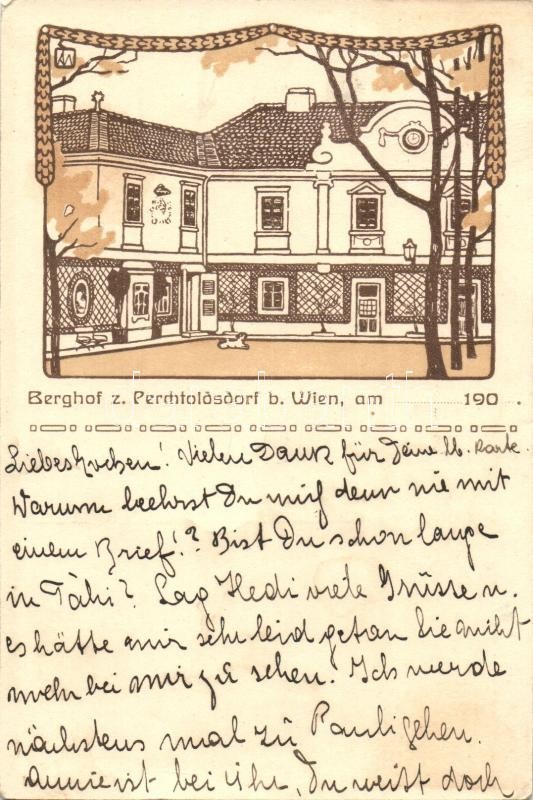 Berghof z. Perchtoldsdorf b. Wien, am 190 .
Vielen Dank für Deine lb. Karte.
Warum beehrst Du mich denn nie mit
einem Brief!? Bist Du schon lange
in Táhi? Sag Hedi viele Grüsse u.
es hätte mir sehr leid getan Sie nicht
mehr bei mir zu sehen. Ich werde
nächstens mal zu Pauli gehen.
Annie ist bei ihr, Du weißt doch